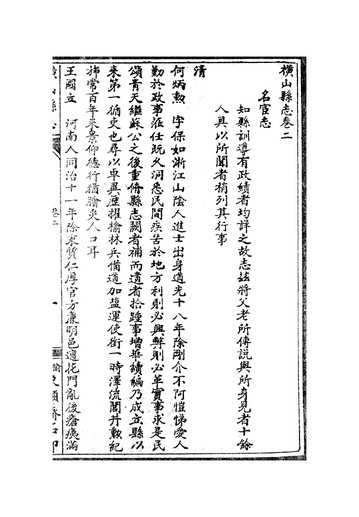 橫山縣志卷二
名宦志
知縣訓導有政績者均詳之故志玆將父老所傳說與所身見者十餘
人具以所聞者稍列其行事
清
何炳勲 字保如浙江山陰人進士出身道光十八年除剛介不阿愷悌愛人
勤於政事蒞任既久洞悉民間疾苦於地方利則必興弊則必革實事求是民
頌青天繼蘇公之後重脩縣志闕者補而遺者拾踵事增華續編乃成立縣以
來第一循吏也尋以卓異歷擢榆林兵備道加鹽運使銜一時澤流闔丹勲紀
旂常百年來景仰德行猶膾炙人口耳
王國立 河南人同治十一年除素質仁厚官方廉明邑遭花門亂後瘡痍滿
卷二